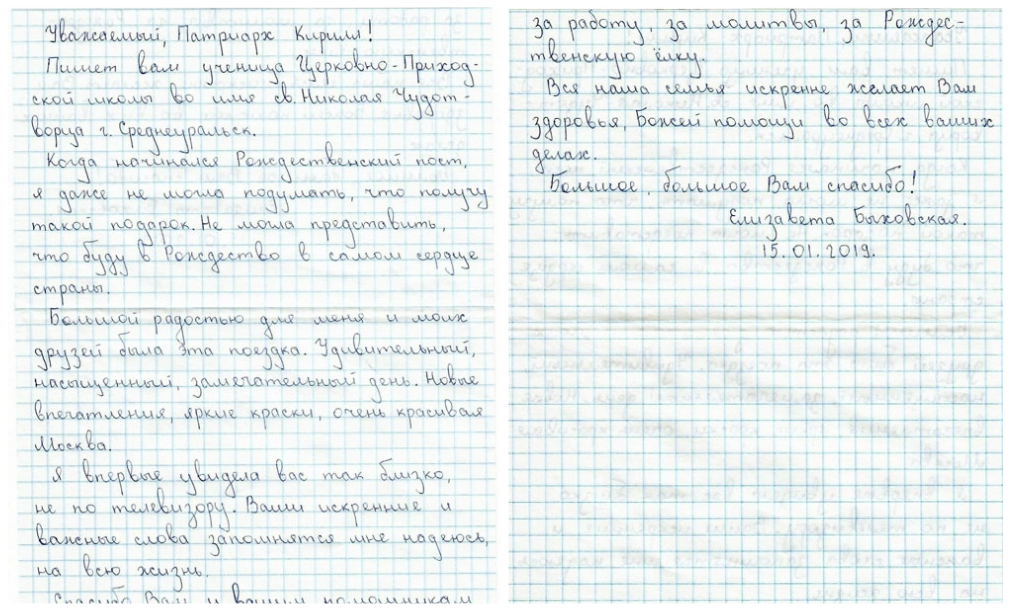 Уважаемый, Патриарх Кирилл!
Пишет вам ученица Церковно-Приход-
ской школы во имя св. Николая Чудот-
ворца г. Среднеуральск.
Когда начинался Рождественский пост,
я даже не могла подумать, что получу
такой подарок. Не могла представить,
что буду в Рождество в самом сердце
страны.
Большой радостью для меня и моих
друзей была эта поездка. Удивительный,
насыщенный, замечательный день. Новые
впечатления, яркие краски, очень красивая
Москва.
Я впервые увидела вас так близко,
не по телевизору. Ваши искренние и
важные слова запомнятся мне надеюсь,
на всю жизнь.
Спасибо Вам и вашим помощникам
за работу, за молитвы, за Рождес-
твенскую ёлку.
Вся наша семья искренне желает Вам
здоровья, Божей помощи во всех ваших
делах.
Большое, большое Вам спасибо!
Елизавета Быховская.
15.01.2019.